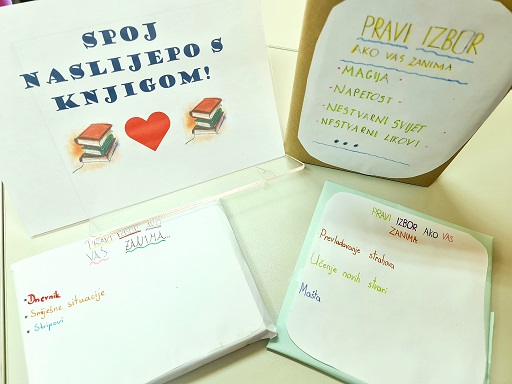 SPOJ
NASLIJEPO S
KNJIGOM!
PRAVI IZBOR
AKO VAS ZANIMA
- MAGIJA -
- NAPETOST -
- NESTVARNI SVIJET
- NESTVARNI LIKOVI -
...
PRAVI IZBOR AKO
VAS ZANIMA...
• Dnevnik
• Smiješne situacije
• Stripovi
PRAVI IZBOR AKO VAS
ZANIMA
Prevladavanje strahova
Učenje novih stvari
Mašta